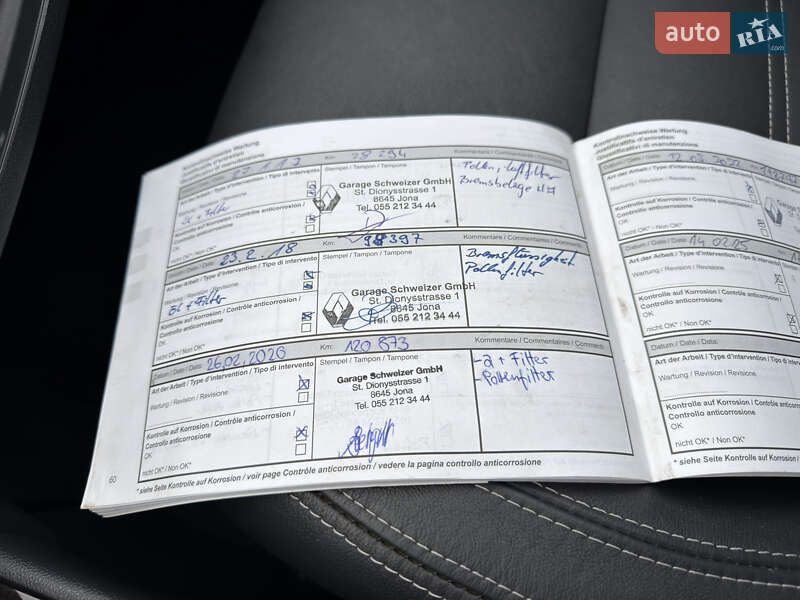 auto RIA .com
Kontrollnachweise Wartung
Justificatifs d'entretien
Giustificativi di manutenzione
Km: 78 294
Kommentare / Commentaires / Commenti:
Art der Arbeit / Type d'intervention / Tipo di intervento
Wartung / Revision / Revisione
Öl + Filter
Kontrolle auf Korrosion / Contrôle anticorrosion /
Controllo anticorrosione
OK
nicht OK* / Non OK*
Stempel / Tampon / Tampone
Garage Schweizer GmbH
St. Dionysstrasse 1
8645 Jona
Tel. 055 212 34 44
Pollen, Luftfilter
Bremsbeläge
Datum / Date / Data: 23.2.18
Km: 98397
Kommentare / Commentaires / Commenti:
Art der Arbeit / Type d'intervention / Tipo di intervento
Wartung / Revision / Revisione
Öl + Filter
Kontrolle auf Korrosion / Contrôle anticorrosion /
Controllo anticorrosione
OK
nicht OK* / Non OK*
Stempel / Tampon / Tampone
Garage Schweizer GmbH
St. Dionysstrasse 1
8645 Jona
Tel. 055 212 34 44
Bremsflüssigkeit
Pollenfilter
Datum / Date / Data: 26.02.2020
Km: 120 873
Kommentare / Commentaires / Commenti:
Art der Arbeit / Type d'intervention / Tipo di intervento
Wartung / Revision / Revisione
Kontrolle auf Korrosion / Contrôle anticorrosion /
Controllo anticorrosione
OK
nicht OK* / Non OK*
Stempel / Tampon / Tampone
Garage Schweizer GmbH
St. Dionysstrasse 1
8645 Jona
Tel. 055 212 34 44
+ Filter
- Pollenfilter
60
* siehe Seite Kontrolle auf Korrosion / voir page Contrôle anticorrosion / vedere la pagina controllo anticorrosione
Kontrollnachweise Wartung
Justificatifs d'entretien
Giustificativi di manutenzione
Datum / Date / Data:
Art der Arbeit / Type d'intervention / Tipo di
Wartung / Revision / Revisione
Kontrolle auf Korrosion / Contrôle
Controllo anticorrosione
OK
nicht OK* / Non OK*
Datum / Date / Data:
Art der Arbeit / Type d'intervention / Tipo
Wartung / Revision / Revisione
Kontrolle auf Korrosion / Contrôle
Controllo anticorrosione
OK
nicht OK* / Non OK*
Datum / Date / Data:
Art der Arbeit / Type d'intervention
Wartung / Revision / Revisione
Kontrolle auf Korrosion / Contrôle
Controllo anticorrosione
OK
nicht OK* / Non OK*
* siehe Seite Kontrolle auf Korrosion